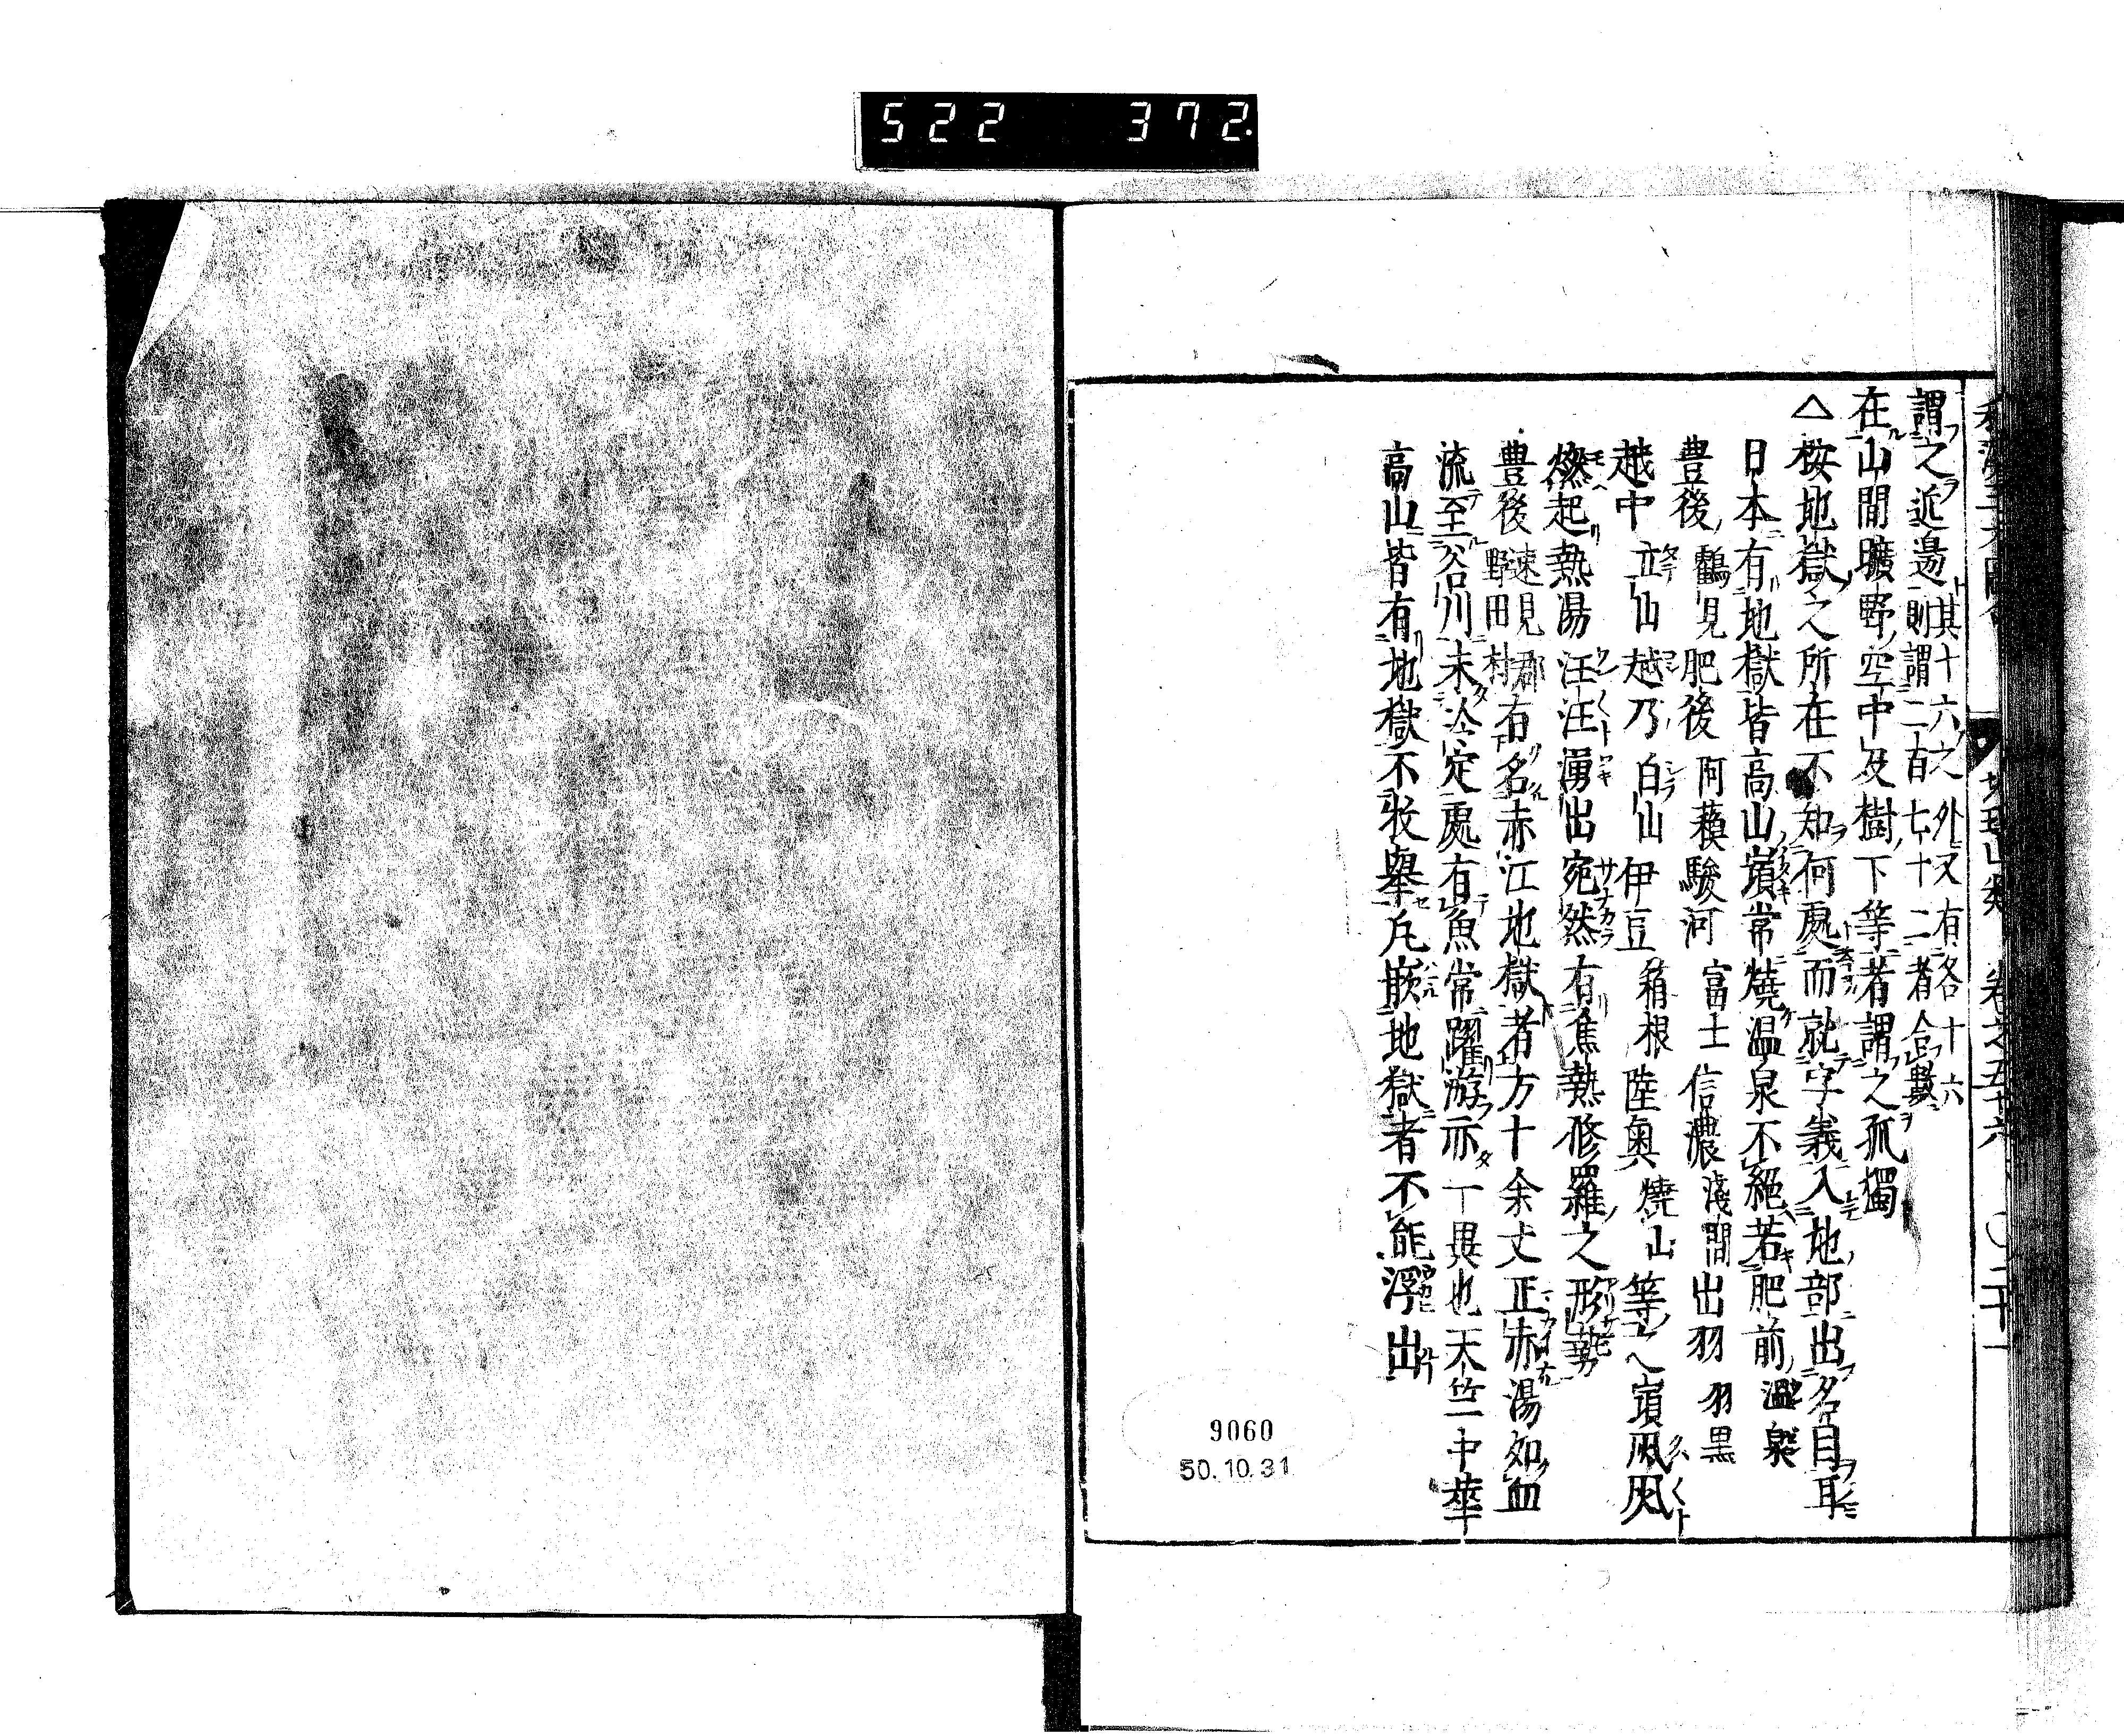 522 372.
和漢三才圖會 地理山類 卷之五十六 ○二十一
謂之近邊 其十六之外又有各十六
則謂二百七十二者合數
在山間曠野空中及樹下等者謂之孤獨
△按地獄之所在不知何處而就字義入地部出名目耳
日本有地獄皆高山嶺常燒温泉不絕若肥前 温泉
豊後 鶴見 肥後 阿蘓 駿河 富士 信濃 淺間 出羽 羽黒
越中 立山 越乃 白山 伊豆 箱根 陸奥 燒山 等之嶺
燃起熱湯汪汪湧出宛然有焦熱修羅之形勢
豊後 速見郡野田村 有名赤江地獄者方十余丈正赤湯如血
流至谷川未冷定處有魚常躍游亦一異也天竺中華
高山皆有地獄不枚舉斥嵌地獄者不能浮出
9060
50.10.31